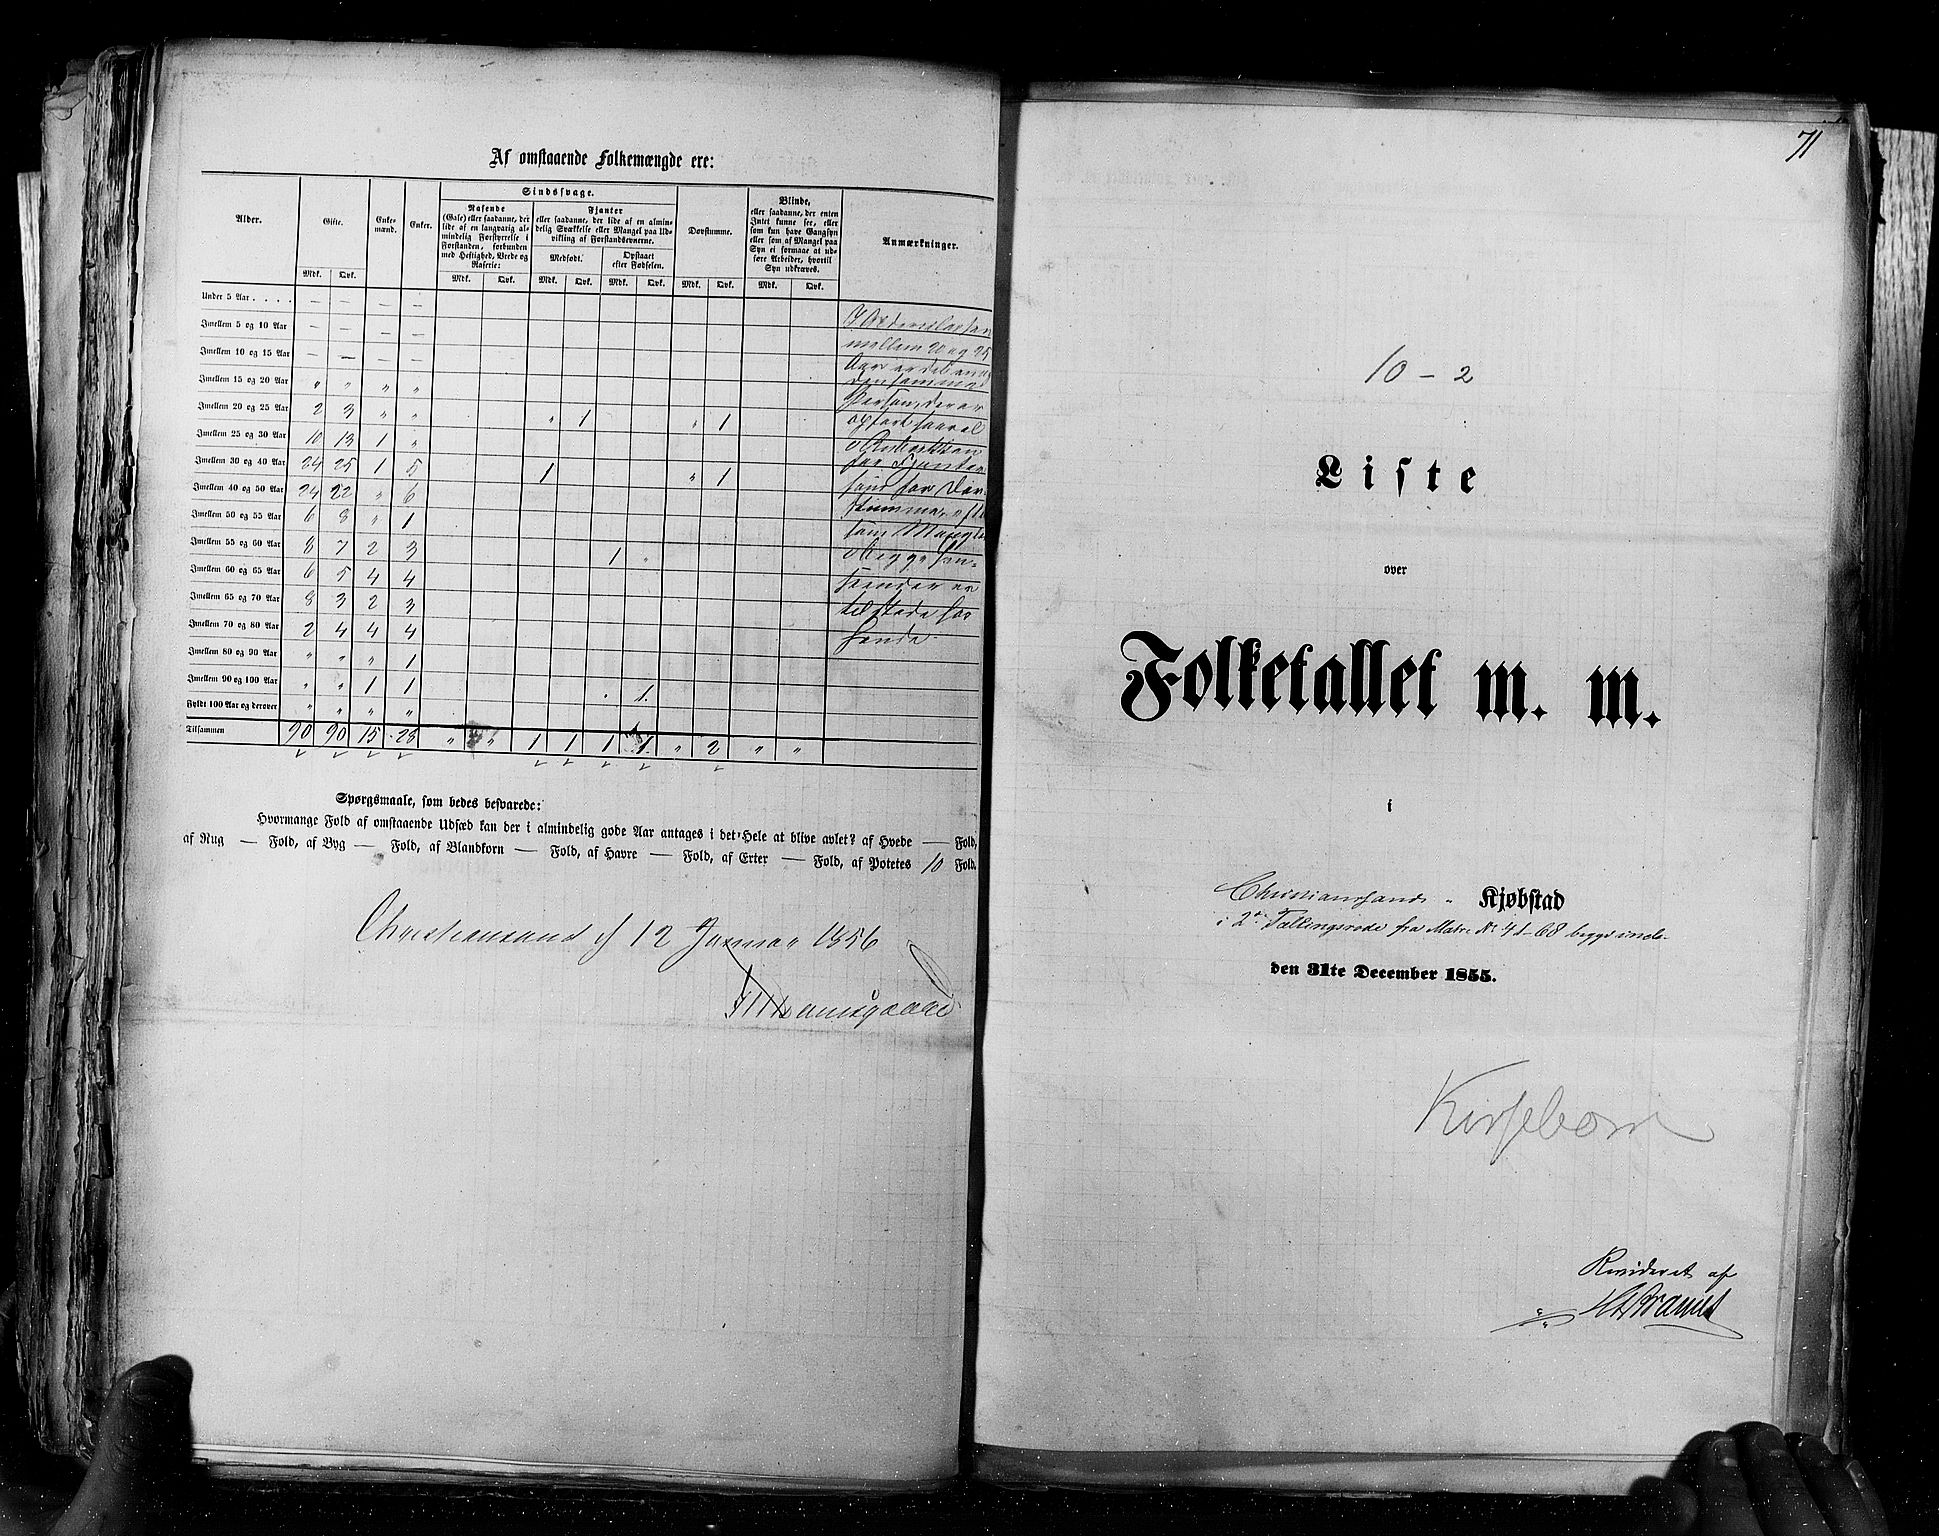 Af omstaaende Folkemængde ere:
Alder. Gifte. Enkemænd. Enker. Sindssvage. Døvstumme. Blinde, Anmærkninger.
Rasende (Gale) eller saadanne, der lide af en langvarig almindelig Forstyrrelse i Forstanden, forbunden med Heftighed, Vrede og Raserie:
Fjanter eller saadanne, der lide af en almindelig Svækkelse eller Mangel paa Udvikling af Forstandsevnerne.
Medfødt. Opstaaet efter Fødselen.
eller saadanne, der enten Intet kunne see, eller som kun have Gangsyn eller som af Mangel paa Syn ei formaae at udføre Arbeider, hvortil Syn udkræves.
Mdk. Qvk. Mdk. Qvk. Mdk. Qvk. Mdk. Qvk. Mdk. Qvk. Mdk. Qvk.
Under 5 Aar . . . . — — — —
Imellem 5 og 10 Aar — — — —
Imellem 10 og 15 Aar — — — —
Imellem 15 og 20 Aar " " " "
Imellem 20 og 25 Aar 2 3 " " " 1 " 1
Imellem 25 og 30 Aar 10 13 1 "
Imellem 30 og 40 Aar 24 25 1 5 1 " 1
Imellem 40 og 50 Aar 24 22 " 6
Imellem 50 og 55 Aar 6 8 " 1
Imellem 55 og 60 Aar 8 7 2 3 1 "
Imellem 60 og 65 Aar 6 5 4 4
Imellem 65 og 70 Aar 8 3 2 3
Imellem 70 og 80 Aar 2 4 4 4
Imellem 80 og 90 Aar " " " 1
Imellem 90 og 100 Aar " " 1 1 . 1.
Fyldt 100 Aar og derover " " " "
Tilsammen 90 90 15 28 " " 1 1 1 1. " 2 " "
mellem 20 og 25
Spørgsmaale, som bedes besvarede:
Hvormange Fold af omstaaende Udsæd kan der i almindelig gode Aar antages i det Hele at blive avlet? af Hvede — Fold,
af Rug — Fold, af Byg — Fold, af Blandkorn — Fold, af Havre — Fold, af Erter — Fold, af Potetes 10 Fold.
Christiansand d 12 Januar 1856
71
10 - 2
Liste
over
Folketallet m. m.
i
Christiansands Kjøbstad
i 2den Tællingsrode fra Matr. No 41-68 begge incl.
den 31te December 1855.
Kirsebom
Revideret af